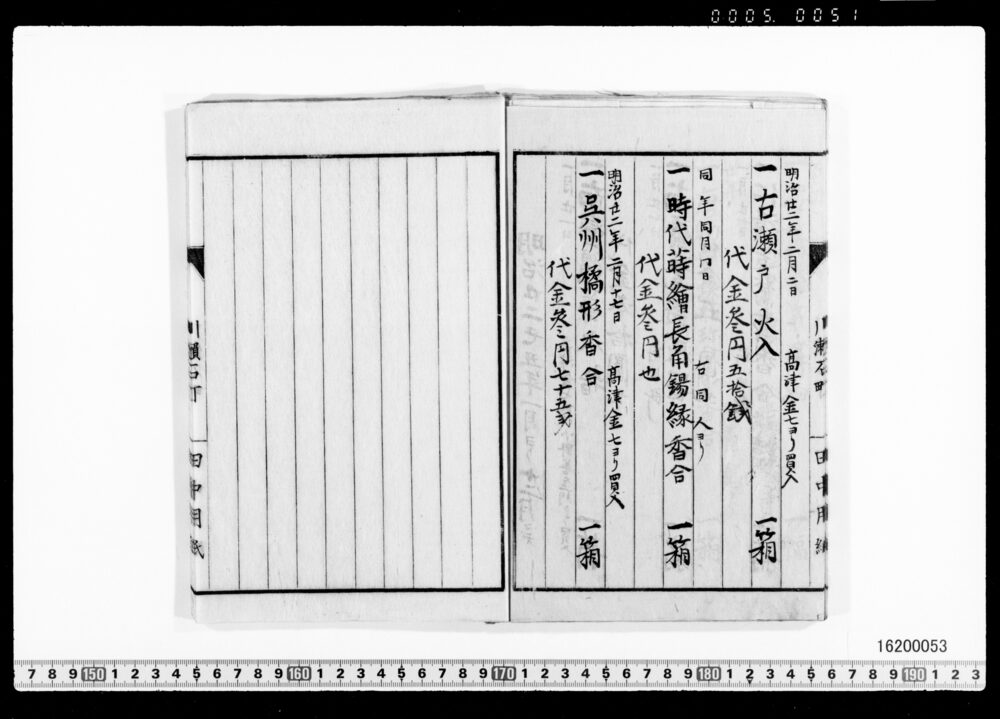 0005. 0051
明治廿二年二月二日　髙津金七ヨリ買入
一古瀬戸火入　一箱
代金叄円五拾銭
同年同月同日　右同人ヨリ
一時代蒔繪長角錫縁香合　一箱
代金叄円也
明治廿二年二月十七日　髙津金七ヨリ買入
一呉州橘形香合　一箱
代金叄円七十五銭
川瀬石町　田中用紙
川瀬石町　田中用紙
16200053
7 8 9 150 1 2 3 4 5 6 7 8 9 160 1 2 3 4 5 6 7 8 9 170 1 2 3 4 5 6 7 8 9 180 1 2 3 4 5 6 7 8 9 190 1 2 3